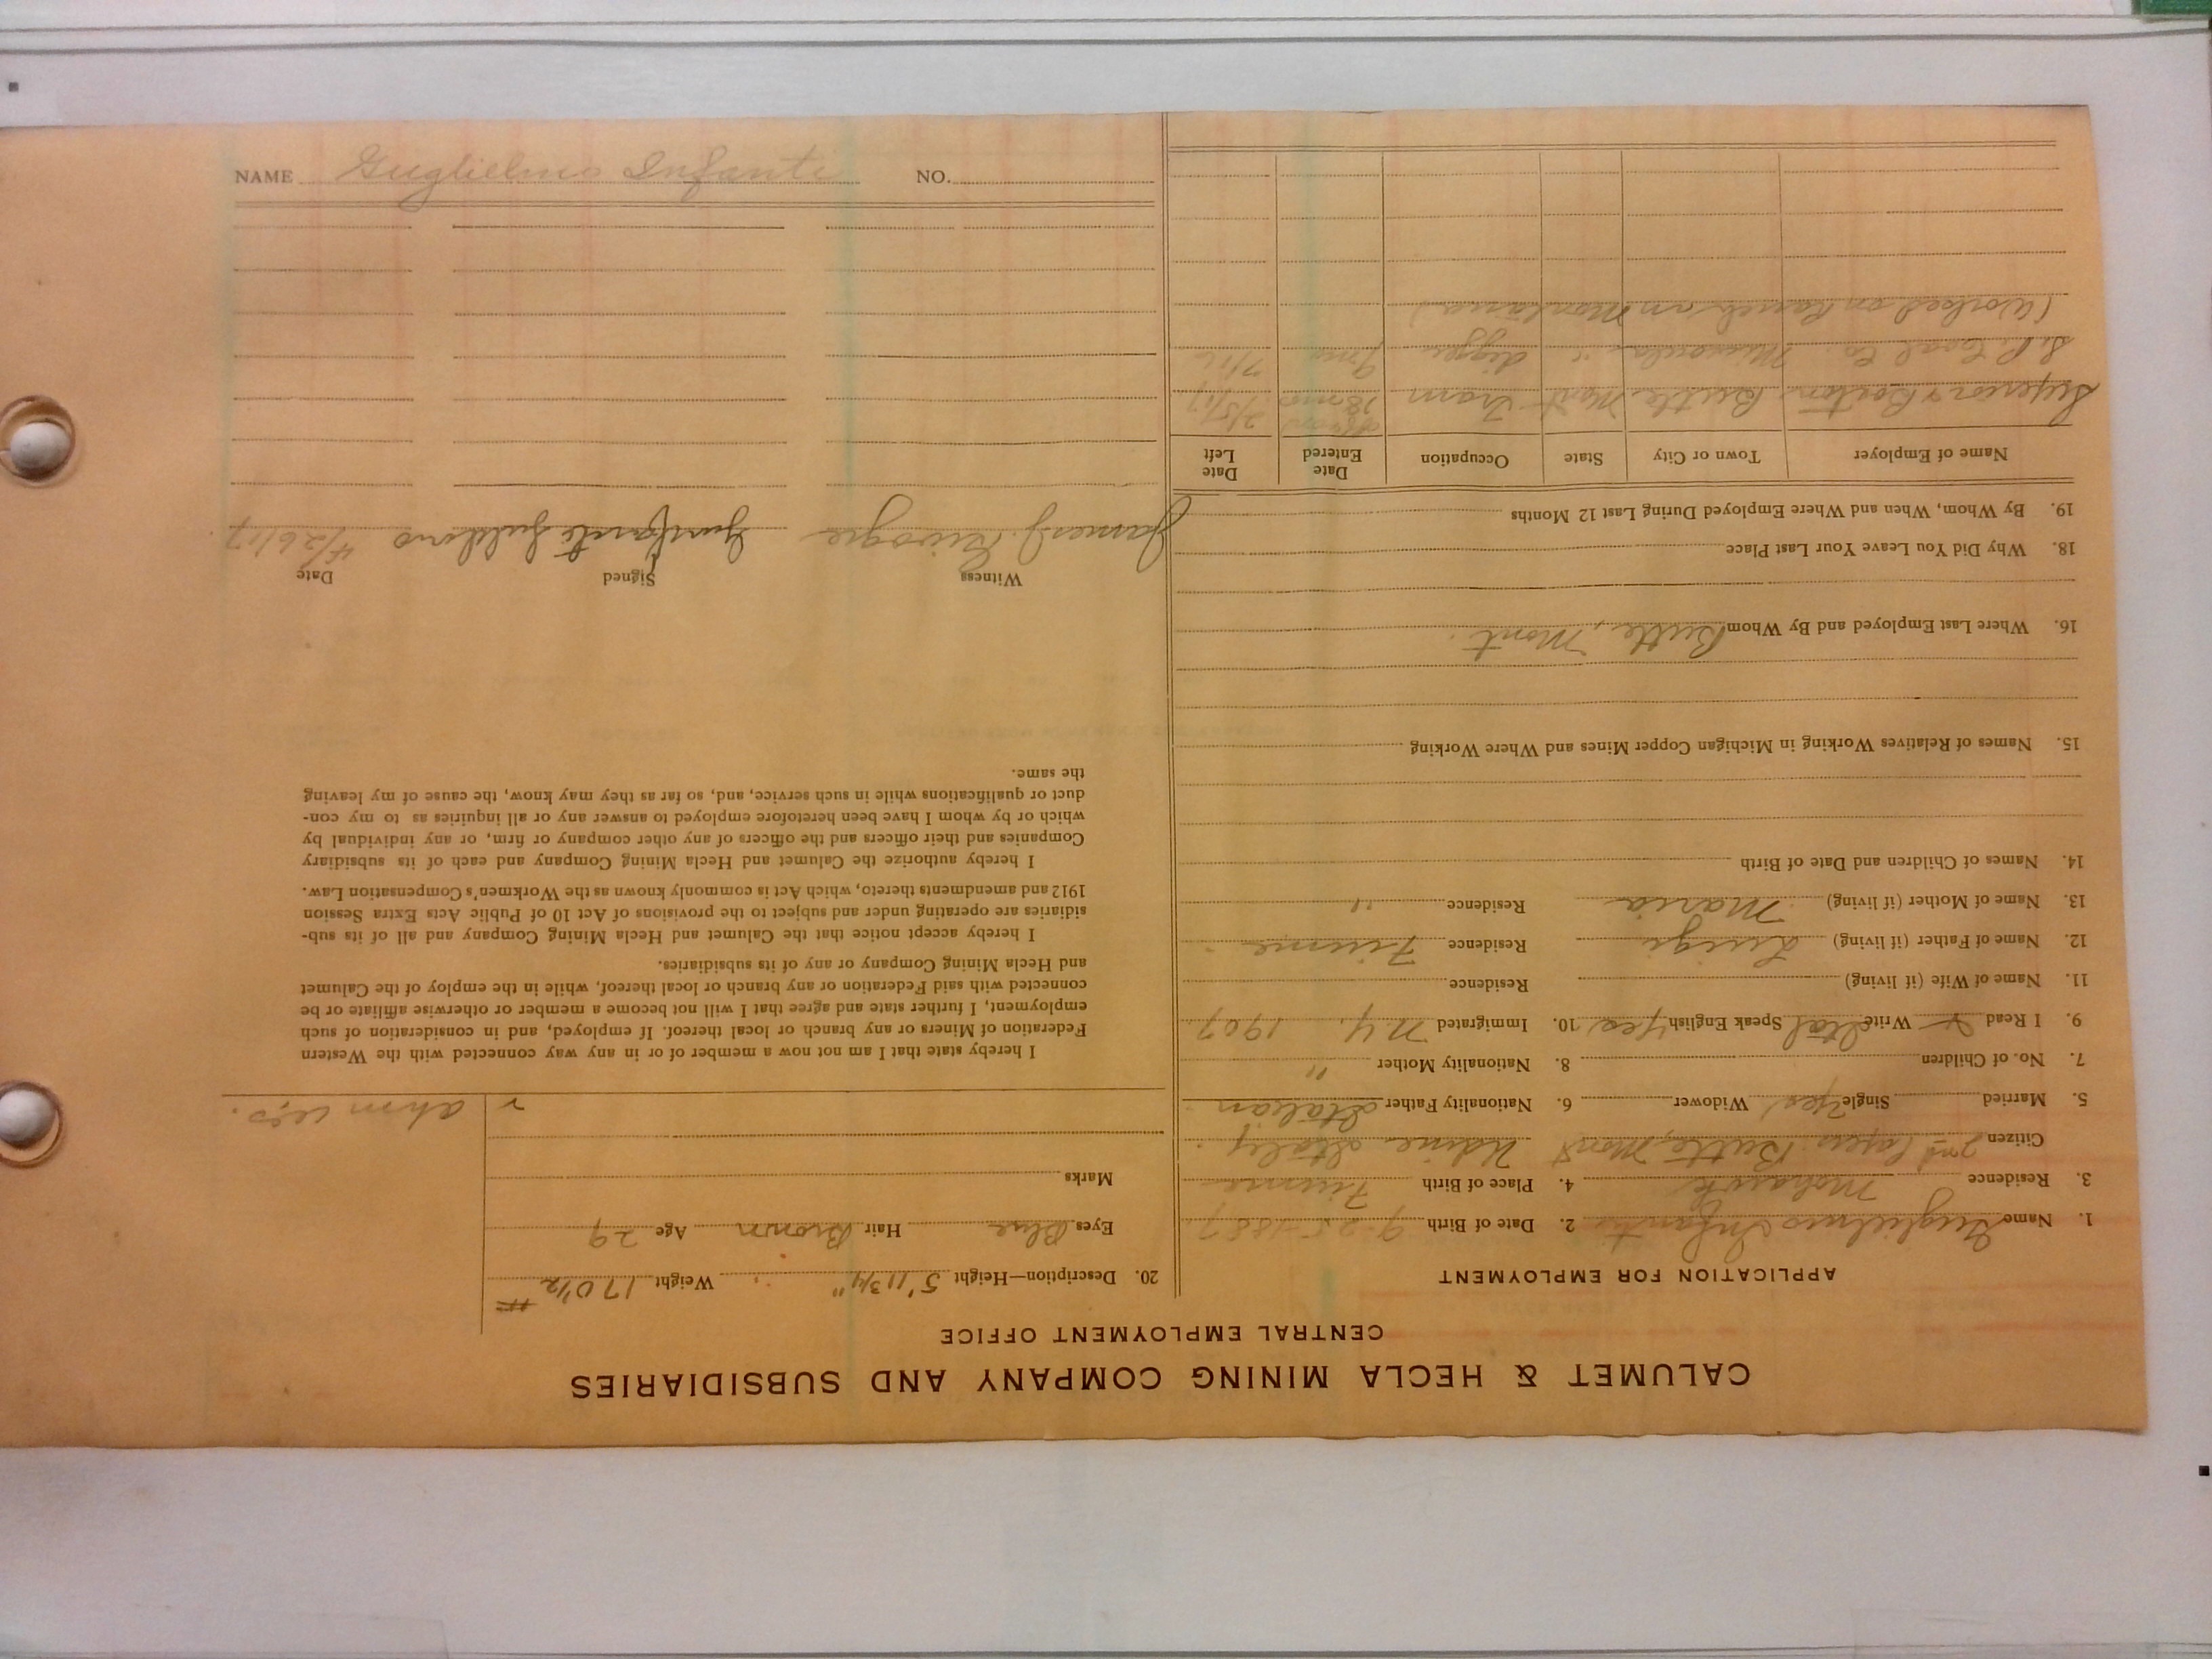 CALUMET & HECLA MINING COMPANY AND SUBSIDIARIES
CENTRAL EMPLOYMENT OFFICE
APPLICATION FOR EMPLOYMENT
1. Name Guglielmo Infanti 2. Date of Birth 9-25-1887
3. Residence Mohawk 4. Place of Birth Fiume
Citizen 2nd Papers Butte, Mont Udine Italy.
5. Married Single Yes Widower 6. Nationality Father Italian
7. No. of Children 8. Nationality Mother "
9. I Read & Write Ital Speak English Yes 10. Immigrated N.Y. 1907
11. Name of Wife (if living) Residence
12. Name of Father (if living) Luigi Residence Fiume
13. Name of Mother (if living) Maria Residence "
14. Names of Children and Date of Birth
15. Names of Relatives Working in Michigan Copper Mines and Where Working
16. Where Last Employed and By Whom Butte, Mont.
18. Why Did You Leave Your Last Place
19. By Whom, When and Where Employed During Last 12 Months
Name of Employer Town or City State Occupation Date Entered Date Left
Superior & Boston Butte Mont Tram 18 mos 2/5/17
Coal Co. Missoula " digger 9 mo 7/16
(Worked on Ranch in Montana)
20. Description—Height 5' 11 3/4" Weight 170 1/2 #
Eyes Blue Hair Brown Age 29
Marks
I hereby state that I am not now a member of or in any way connected with the Western
Federation of Miners or any branch or local thereof. If employed, and in consideration of such
employment, I further state and agree that I will not become a member or otherwise affiliate or be
connected with said Federation or any branch or local thereof, while in the employ of the Calumet
and Hecla Mining Company or any of its subsidiaries.
I hereby accept notice that the Calumet and Hecla Mining Company and all of its sub-
sidiaries are operating under and subject to the provisions of Act 10 of Public Acts Extra Session
1912 and amendments thereto, which Act is commonly known as the Workmen's Compensation Law.
I hereby authorize the Calumet and Hecla Mining Company and each of its subsidiary
Companies and their officers and the officers of any other company or firm, or any individual by
which or by whom I have been heretofore employed to answer any or all inquiries as to my con-
duct or qualifications while in such service, and, so far as they may know, the cause of my leaving
the same.
Witness Signed Date
James J. 4/26/17
NAME Guglielmo Infanti NO.